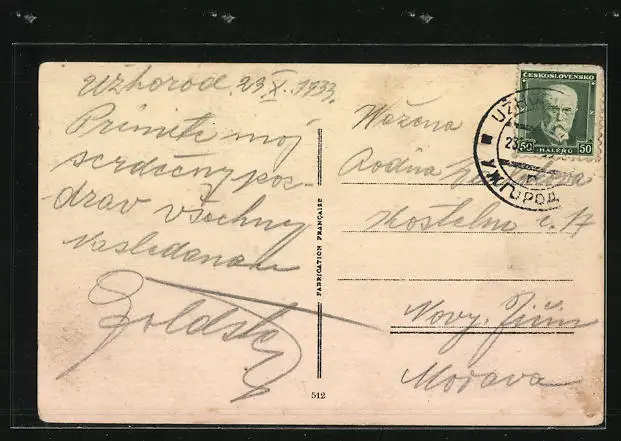 Užhorod 23.X.1933.
Primiti moj
serdečny poz-
drav všechny
Nasledanau
FABRICATION FRANÇAISE
512
ČESKOSLOVENSKO
50 HALÉŘŮ 50
УЖГОРОД
Važena
Rodina
Kostelna č. 17
Novy Jičin
Morava